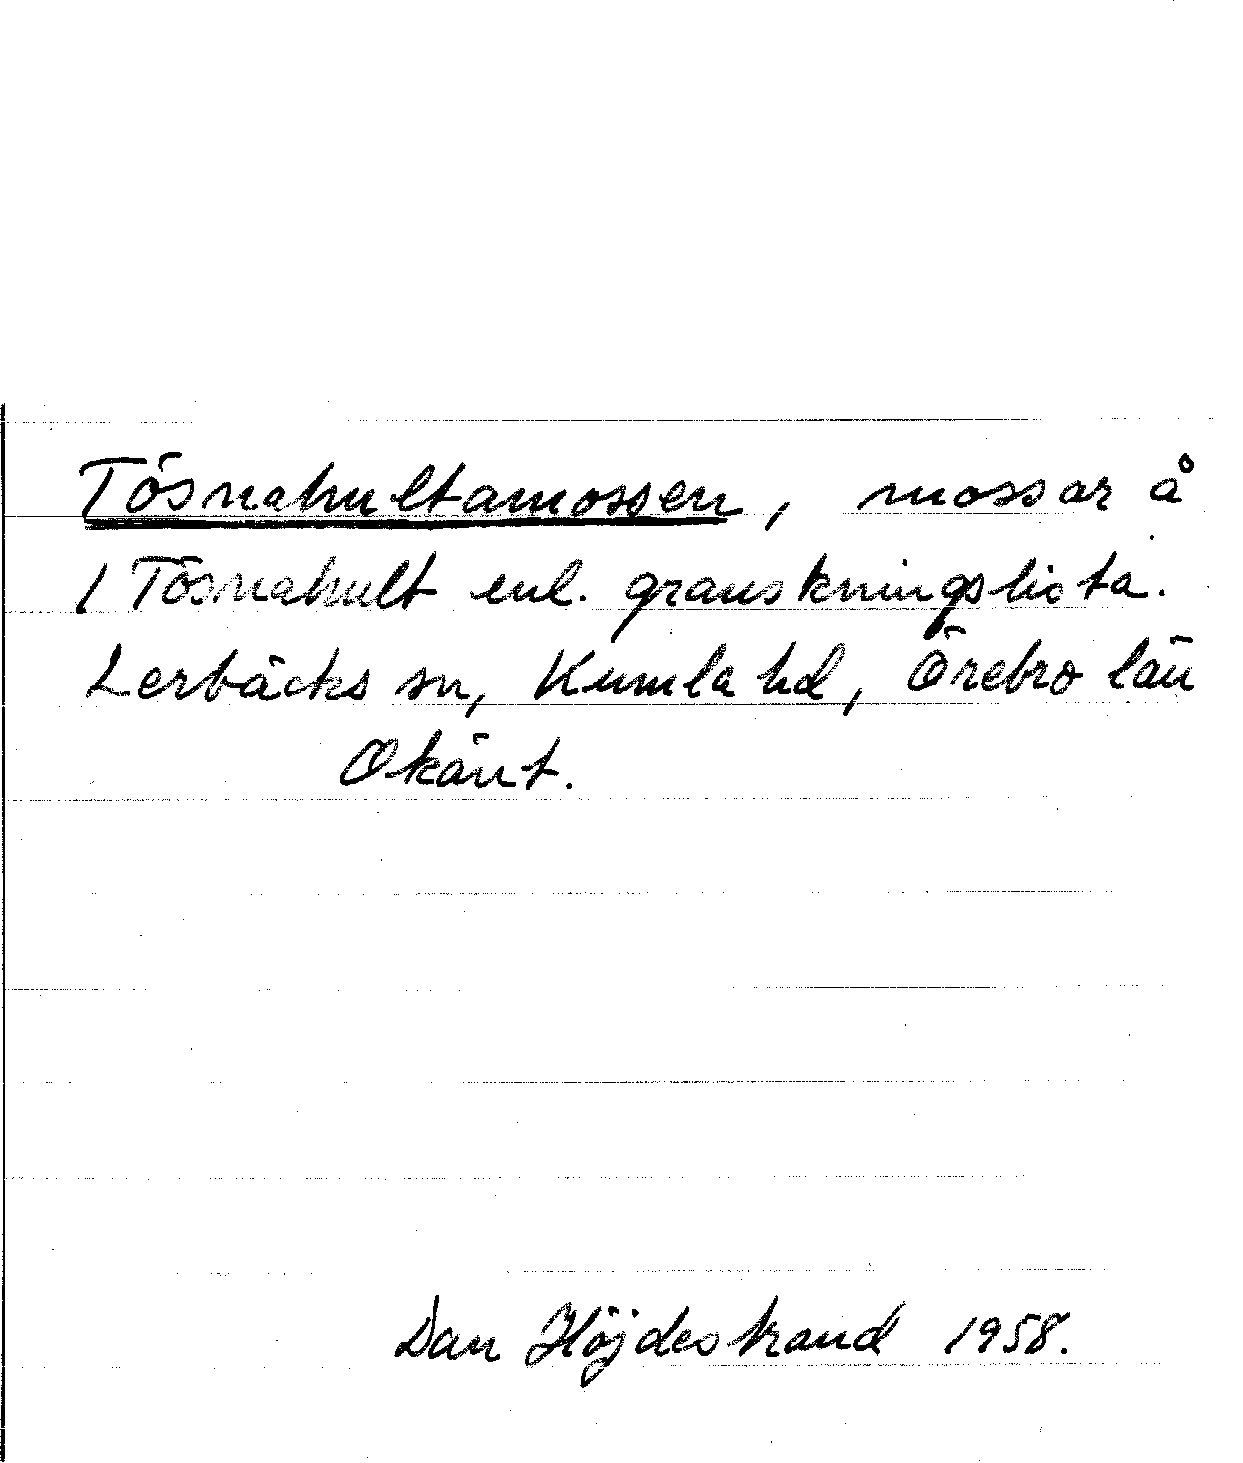 Tösnahultamossen, mossar å
/ Tösnahult enl. granskningslista.
Lerbäcks sn, Kumla hd, Örebro län
Okänt.
Dan Höjdestrand 1958.